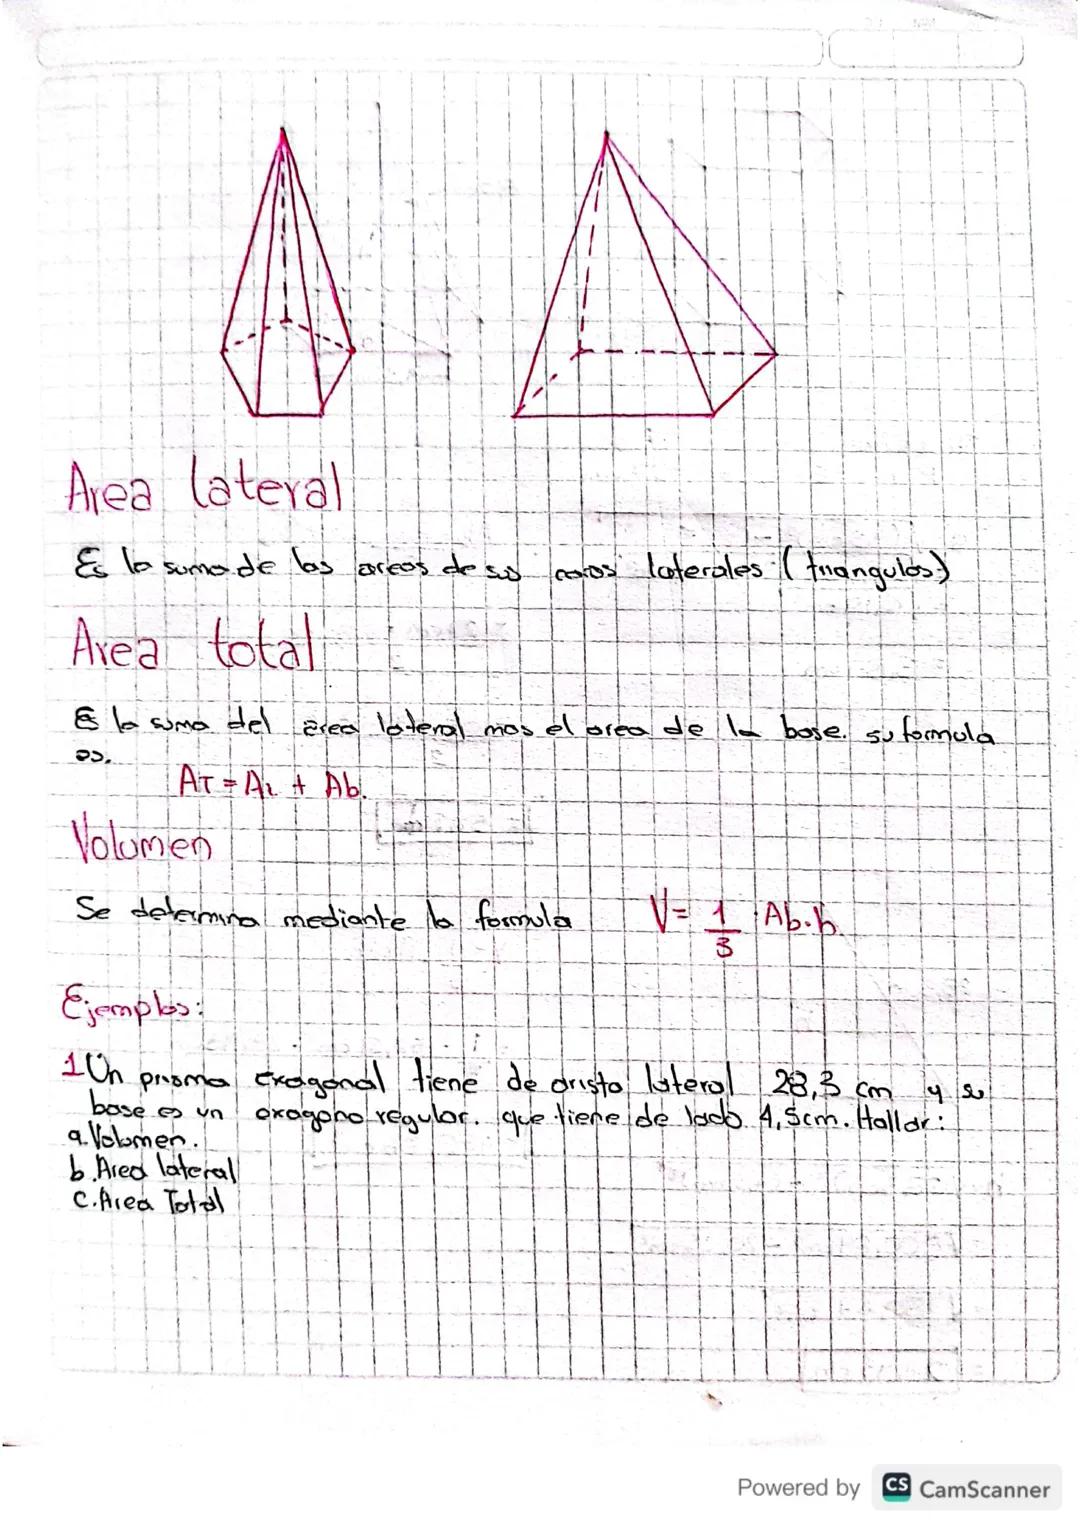 Area lateral
Es la suma de las areas de sus caras laterales (triangulos)
Area total
Es la suma del area lateral mas el area de la base. su formula
es.
AT = AL + Ab.
Volumen
Se determina mediante la formula V = 1/3 Ab.h.
Ejemplos:
1 Un prisma exagonal tiene de arista lateral 28,3 cm y su
base es un exagono regular. que tiene de lado 4,5cm. Hallar:
a. Volumen.
b. Area lateral
c. Area Total
Powered by CS CamScanner